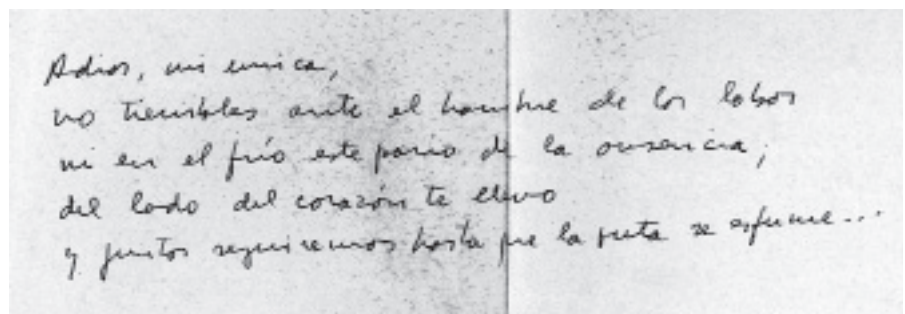 Adios, mi unica,
no tiembles ante el hambre de los lobos
ni en el frío estepario de la ausencia;
del lado del corazón te llevo
y juntos seguiremos hasta que la ruta se esfume...